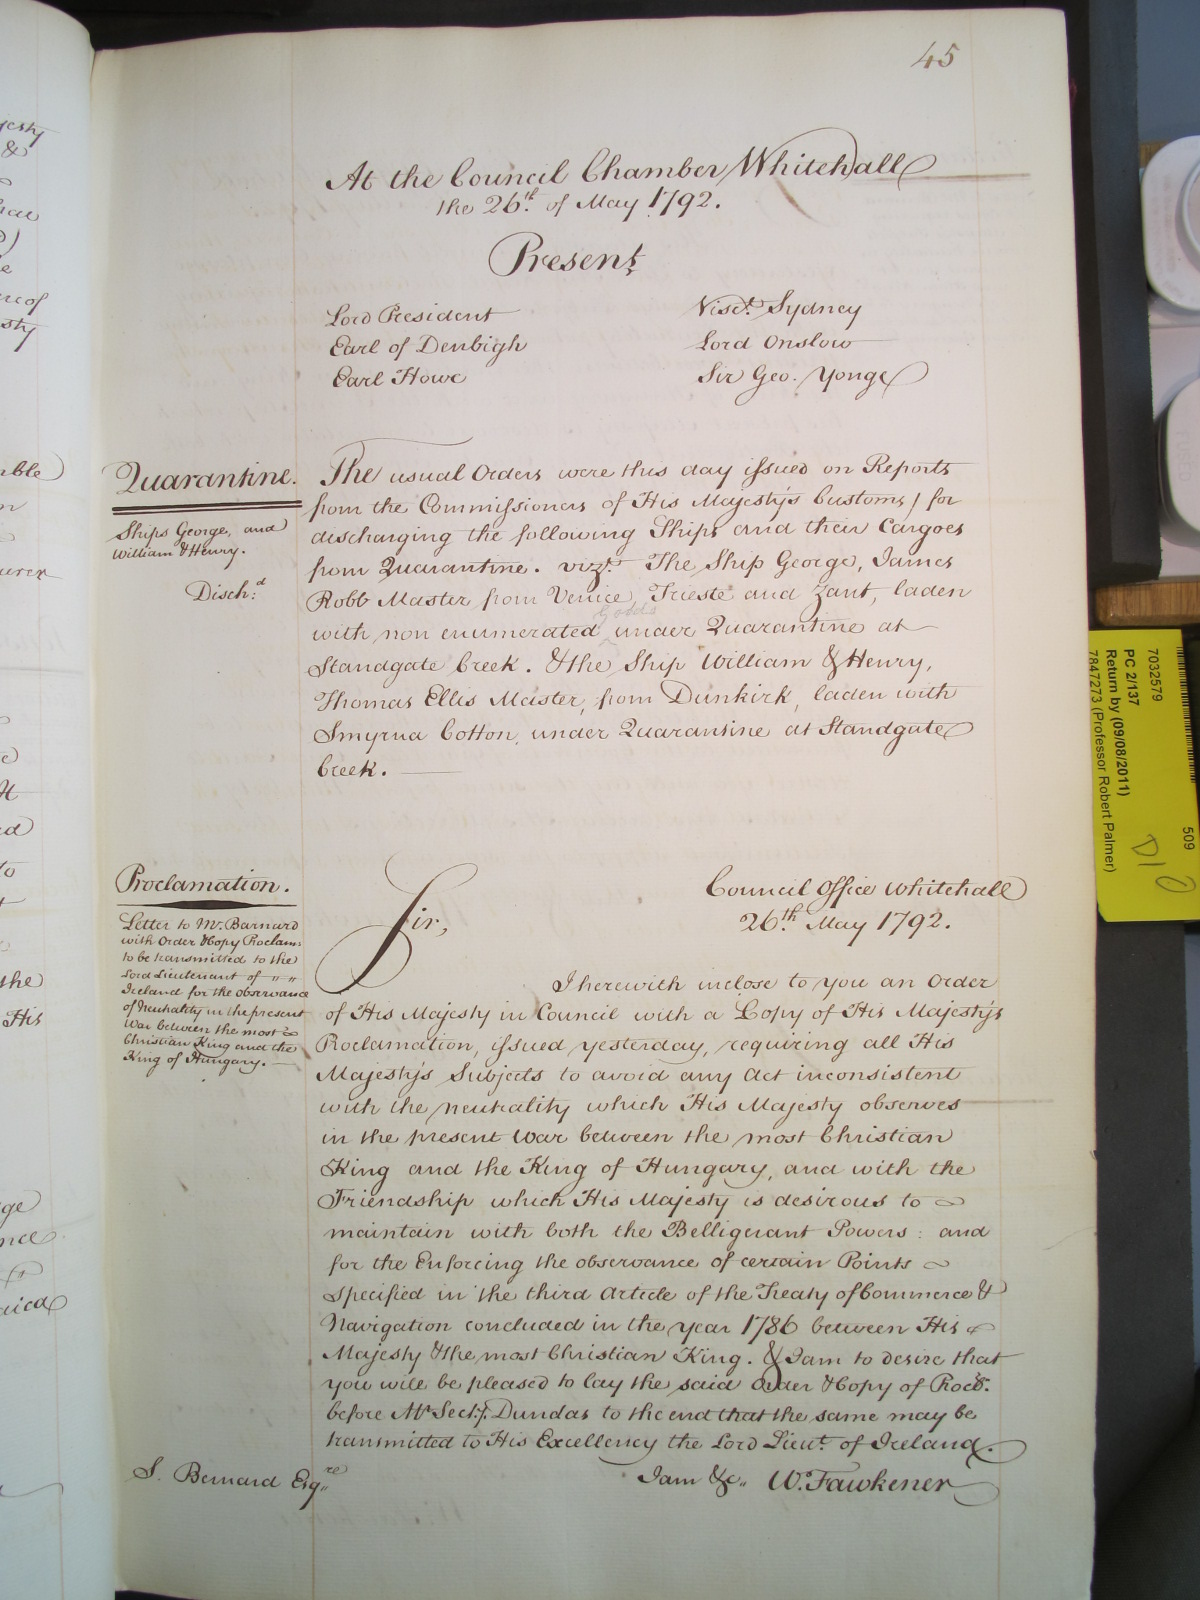 45
At the Council Chamber Whitehall
the 26th. of May 1792.
Present
Lord President
Earl of Denbigh
Earl Howe
Visct. Sydney
Lord Onslow
Sir Geo. Yonge
Quarantine.
Ships George, and
William & Henry.
Disch:d
The usual Orders were this day issued on Reports
from the Commissioners of His Majesty's Customs, for
discharging the following Ships and their Cargoes
from Quarantine. vizt. The Ship George, James
Robb Master from Venice, Trieste and Zant, laden
goods
with non enumerated ^ under Quarantine at
Standgate Creek. & the Ship William & Henry,
Thomas Ellis Master, from Dunkirk, laden with
Smyrna Cotton, under Quarantine at Standgate
Creek.
Proclamation.
Letter to Mr. Barnard
with Order & Copy Proclam:
to be transmitted to the
Lord Lieutenant of " "
Ireland for the observance
of Neutrality in the present
War between the most
Christian King and the
King of Hungary.
Sir,
Council Office Whitehall
26th. May 1792.
I herewith inclose to you an Order
of His Majesty in Council with a Copy of His Majesty's
Proclamation, issued yesterday, requiring all His
Majesty's Subjects to avoid any Act inconsistent
with the neutrality which His Majesty observes
in the present War between the most Christian
King and the King of Hungary, and with the
Friendship which His Majesty is desirous to
maintain with both the Belligerant Powers: and
for the Enforcing the observance of certain Points
specified in the third Article of the Treaty of Commerce &
Navigation concluded in the year 1786 between His
Majesty & the most Christian King. & I am to desire that
you will be pleased to lay the said Order & Copy of Procl.
before Mr. Secry. Dundas to the end that the same may be
transmitted to His Excellency the Lord Lieut. of Ireland.
I am &c. W. Fawkener
S. Bernard Esqre
7032579
509
PC 2/137
Return by (09/08/2011)
7847273 (Professor Robert Palmer)
D10